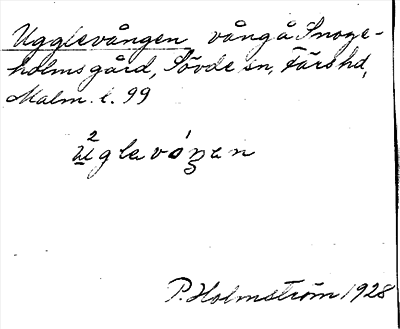 Ugglevången vång å Snoge-
holms gård, Sövde sn, Färs hd,
Malm. l. 99
2
uglevóŋen
P. Holmström 1928